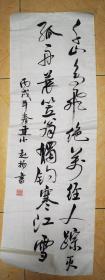 千山鸟飛绝萬径人踪灭
孤舟蓑笠翁獨钓寒江雪
丙戌年春
書